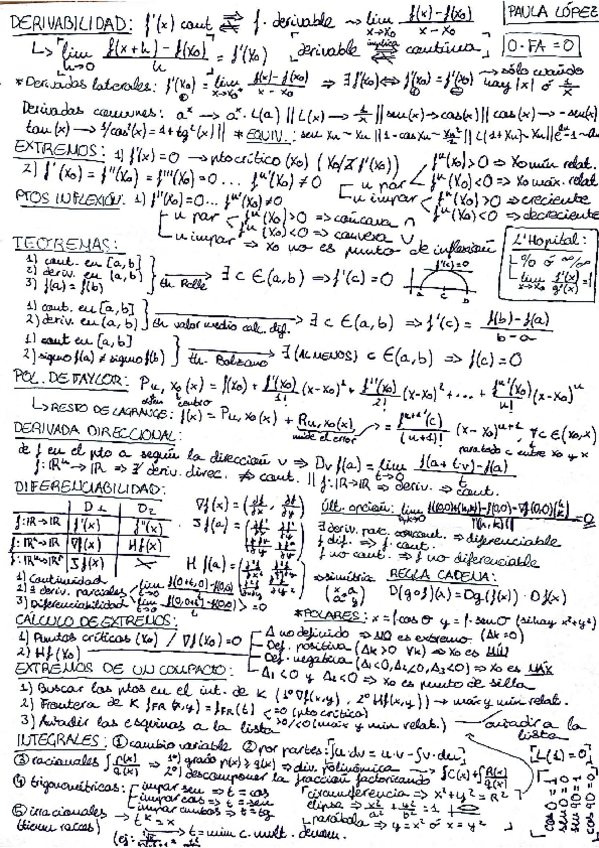 DERIVABILIDAD: f'(x) cont ⇄ f. derivable → lim x→x₀ f(x)-f(x₀) / x-x₀
PAULA LÓPEZ
↳ lim h→0 f(x+h)-f(x₀) / h = f'(x₀) [derivable implica continua]
0·FA=0
*Derivadas laterales: f'(x₀) = lim x→x₀ f(x)-f(x₀) / x-x₀ ⇒ ∃ f'(x₀) ⇔ f'(x₀) = f'(x₀) → sólo cuando hay |x| ó 1/x
Derivadas comunes: aˣ → aˣ·L(a) || L(x) → 1/x || sen(x) → cos(x) || cos(x) → -sen(x)
tan(x) → 1/cos²(x) = 1+tg²(x) || *EQUIV.: sen Xn ~ Xn || 1-cos Xn ~ Xn²/2 || L(1+Xn) ~ Xn
EXTREMOS: 1) f'(x)=0 → pto crítico (x₀) (x₀/∄ f'(x₀))
2) f'(x₀) = f''(x₀) = f'''(x₀) = 0 ... fⁿ(x₀) ≠ 0
n par fⁿ(x₀)>0 ⇒ x₀ mín relat.
fⁿ(x₀)<0 ⇒ x₀ máx. relat
n impar >0 ⇒ creciente
fⁿ(x₀)<0 ⇒ decreciente
PTOS INFLEXIÓN. 1) f''(x₀)=0... fⁿ(x₀)≠0
n par fⁿ(x₀)>0 ⇒ cóncava ∩
fⁿ(x₀)<0 ⇒ convexa ∪
n impar ⇒ x₀ no es punto de inflexión
TEOREMAS:
1) cont. en [a,b]
2) deriv. en (a,b)
3) f(a) = f(b)
th Rolle → ∃ c ∈ (a,b) ⇒ f'(c) = 0
f'(c)=0
a c b
L'Hopital:
0/0 ó ∞/∞
lim x→x₀ f'(x)/g'(x) = l
1) cont. en [a,b]
2) deriv. en (a,b)
th valor medio cálc. dif. → ∃ c ∈ (a,b) ⇒ f'(c) = f(b)-f(a) / b-a
1) cont en [a,b]
2) signo f(a) ≠ signo f(b)
th. Bolzano → ∃ (AL MENOS) c ∈ (a,b) ⇒ f(c) = 0
POL. DE TAYLOR: Pn,x₀(x) = f(x₀) + f'(x₀)/1! (x-x₀)¹ + f''(x₀)/2! (x-x₀)² + ... + fⁿ(x₀)/n! (x-x₀)ⁿ
centro
↳ RESTO DE LAGRANGE: f(x) = Pn,x₀(x) + Rn,x₀(x) = fⁿ⁺¹(c)/(n+1)! (x-x₀)ⁿ⁺¹, ∀c ∈ (x₀,x)
mide el error
para todo c entre x₀ y x
DERIVADA DIRECCIONAL:
de f en el pto a según la dirección v ⇒ Dv f(a) = lim t→0 f(a+t·v)-f(a) / t
f: ℝⁿ → ℝ ⇒ ∃ deriv. direc. ⇏ cont. || f: ℝ → ℝ ⇒ deriv. ⇒ cont.
DIFERENCIABILIDAD:
D1 D2
f: ℝ→ℝ f'(x) f''(x)
f: ℝⁿ→ℝ ∇f(x) Hf(x)
f: ℝⁿ→ℝᵐ Jf(x)
∇f(x) =
Jf(a) =
Hf(a) =
últ. opción:
∃ deriv. parc. cont. ⇒ diferenciable
f dif. ⇒ f cont.
f no cont. ⇒ f no diferenciable
⇒ simétrica
REGLA CADENA:
D(g∘f)(x) = Dg(f(x)) · Df(x)
1) Continuidad
2) ∃ deriv. parciales
3) Diferenciabilidad
*POLARES: x = ρ·cos θ y = ρ·sen θ (si hay x²+y²)
CÁLCULO DE EXTREMOS:
1) Puntos críticos (x₀) / ∇f(x₀) = 0
2) Hf(x₀)
Δ no definido ⇒ NO es extremo. (Δk=0)
Def. positiva (Δk>0 ∀k) ⇒ x₀ es MÍN
Def. negativa (Δ1<0, Δ2<0, Δ3<0) ⇒ x₀ es MÁX
Δ1≤0 y Δ2<0 ⇒ x₀ es punto de silla
EXTREMOS DE UN COMPACTO:
1) Buscar los ptos en el int. de K (1º ∇f(x,y), 2º Hf(x,y)) → máx y mín relat.
2) Frontera de K fFR(x,y) = fFR(t) =0 (pto crítico)
>0/<0 (máx y mín relat.)
añadir a la lista
3) Añadir las esquinas a la lista
INTEGRALES: ① cambio variable ② por partes: [∫u·dv = u·v - ∫v·du]
③ racionales ∫ p(x)/q(x) ⇒ 1º) grado p(x) ≥ q(x) ⇒ div. polinómica → ∫C(x) + ∫R(x)/q(x)
2º) descomponer la fracción factorizando
④ trigonométricas:
impar sen ⇒ t = cos
impar cos ⇒ t = sen
impar ambos ⇒ t = tg
circunferencia ⇒ x²+y² = R²
elipse ⇒ x²/a² + y²/b² = 1
parábola ⇒ y=x² ó x=y²
⑤ irracionales
(tienen raíces)
t = mín c. mult. denom.
L(1)=0
cos 0 = 1
sen 0 = 0
sen 90 = 1
cos 90 = 0